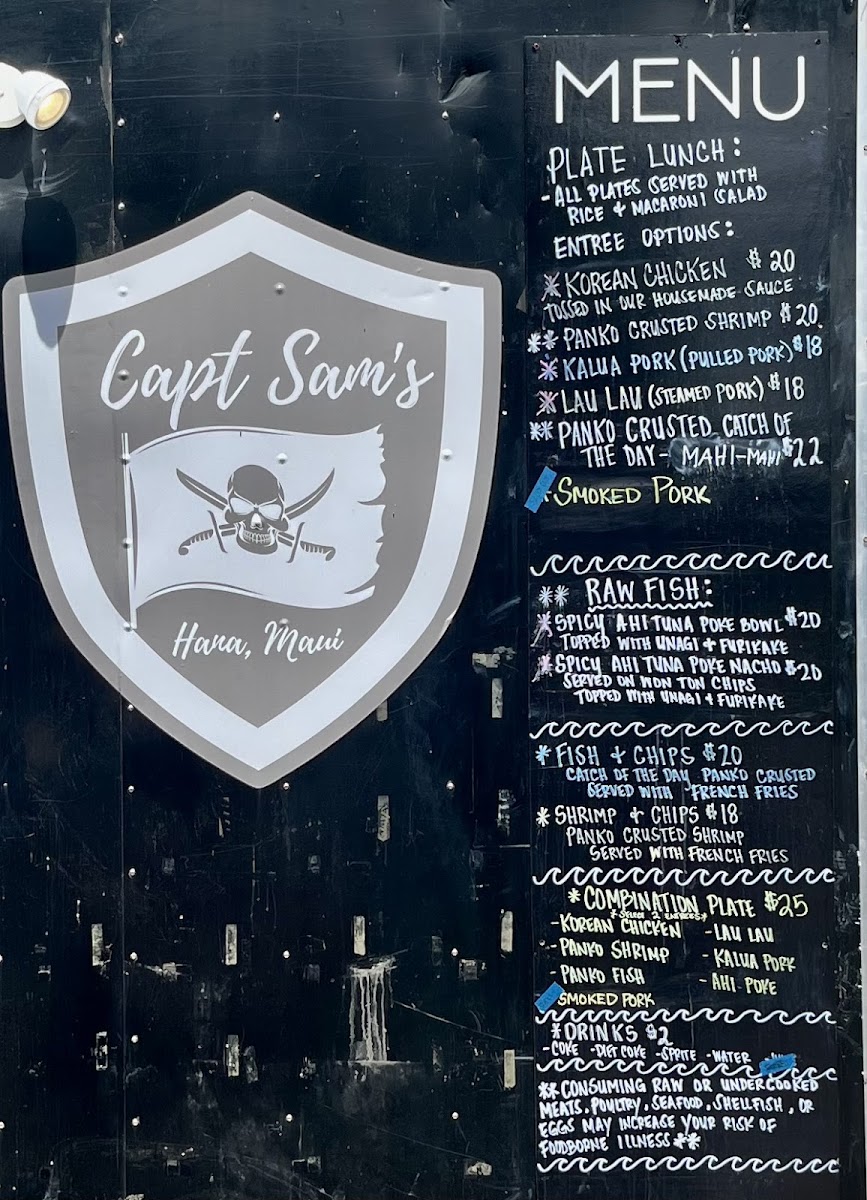 Capt Sam's
Hana, Maui
MENU
PLATE LUNCH:
- ALL PLATES SERVED WITH
RICE + MACARONI SALAD
ENTREE OPTIONS:
* KOREAN CHICKEN $20
TOSSED IN OUR HOUSEMADE SAUCE
** PANKO CRUSTED SHRIMP $20
* KALUA PORK (PULLED PORK) $18
* LAU LAU (STEAMED PORK) $18
** PANKO CRUSTED CATCH OF
THE DAY - MAHI-MAHI $22
SMOKED PORK
** RAW FISH:
* SPICY AHI TUNA POKE BOWL $20
TOPPED WITH UNAGI + FURIKAKE
* SPICY AHI TUNA POKE NACHO $20
SERVED ON WON TON CHIPS
TOPPED WITH UNAGI + FURIKAKE
* FISH + CHIPS $20
CATCH OF THE DAY PANKO CRUSTED
SERVED WITH FRENCH FRIES
* SHRIMP + CHIPS $18
PANKO CRUSTED SHRIMP
SERVED WITH FRENCH FRIES
* COMBINATION PLATE $25
*SELECT 2 ENTREES*
- KOREAN CHICKEN - LAU LAU
- PANKO SHRIMP - KALUA PORK
- PANKO FISH - AHI POKE
SMOKED PORK
* DRINKS $2
- COKE - DIET COKE - SPRITE - WATER
** CONSUMING RAW OR UNDERCOOKED
MEATS, POULTRY, SEAFOOD, SHELLFISH, OR
EGGS MAY INCREASE YOUR RISK OF
FOODBORNE ILLNESS **